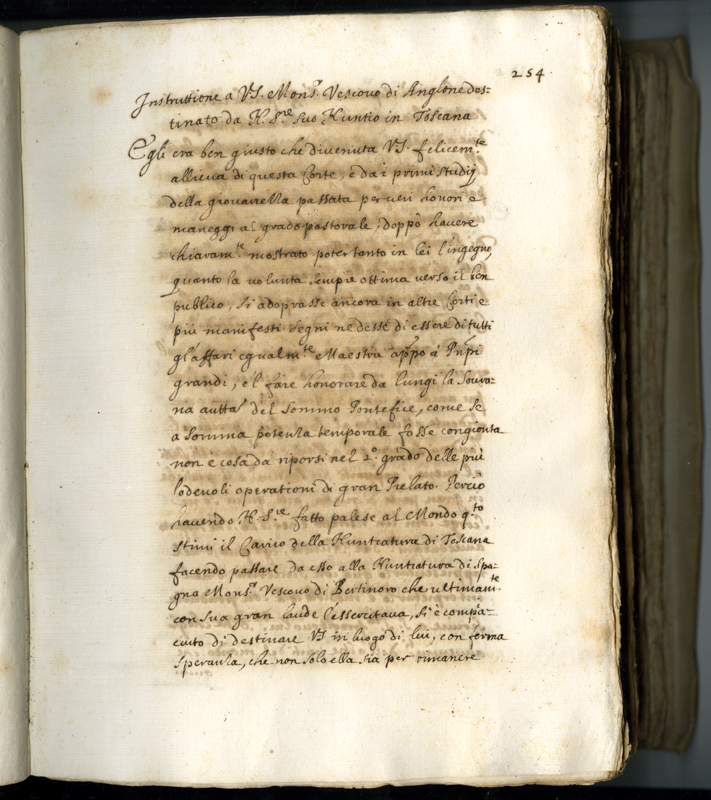 254.
Instruttione a VS. Mons.r Vescovo di Anglone des=
tinato da N. S.re suo Nuntio in Toscana
Egli era ben giusto che divenuta VS. felicem.te
allieva di questa Corte, e da i primi studij
della giovanella passata per veri honori e
maneggi al grado pastorale, doppò havere
chiaram.te mostrato poter tanto in lei l'ingegno,
quanto la volunta sempre ottima verso il ben
publico, si adoprasse ancora in altre Corti e
più manifesti segni ne desse di essere di tutti
gl'affari egualm.te Maestra appo à Prnpi
grandi, e'l fare honorare da lungi la Sovra=
na autta' del Sommo Pontefice, come se
a somma potenza temporale fosse congionta
non è cosa da riporsi nel 2.o grado delle più
lodevoli operationi di gran Prelato. Perciò
havendo N. S.re fatto palese al Mondo q.to
stimi il Carico della Nuntiatura di Toscana
facendo passare da esso alla Nuntiatura di Spa=
gna Mons.r Vescovo di Bertinoro che ultimam.te
con sua gran laude l'essercitava, si è compia=
ciuto di destinare VS in luogo di lui, con ferma
speranza, che non solo ella sia per rimanere